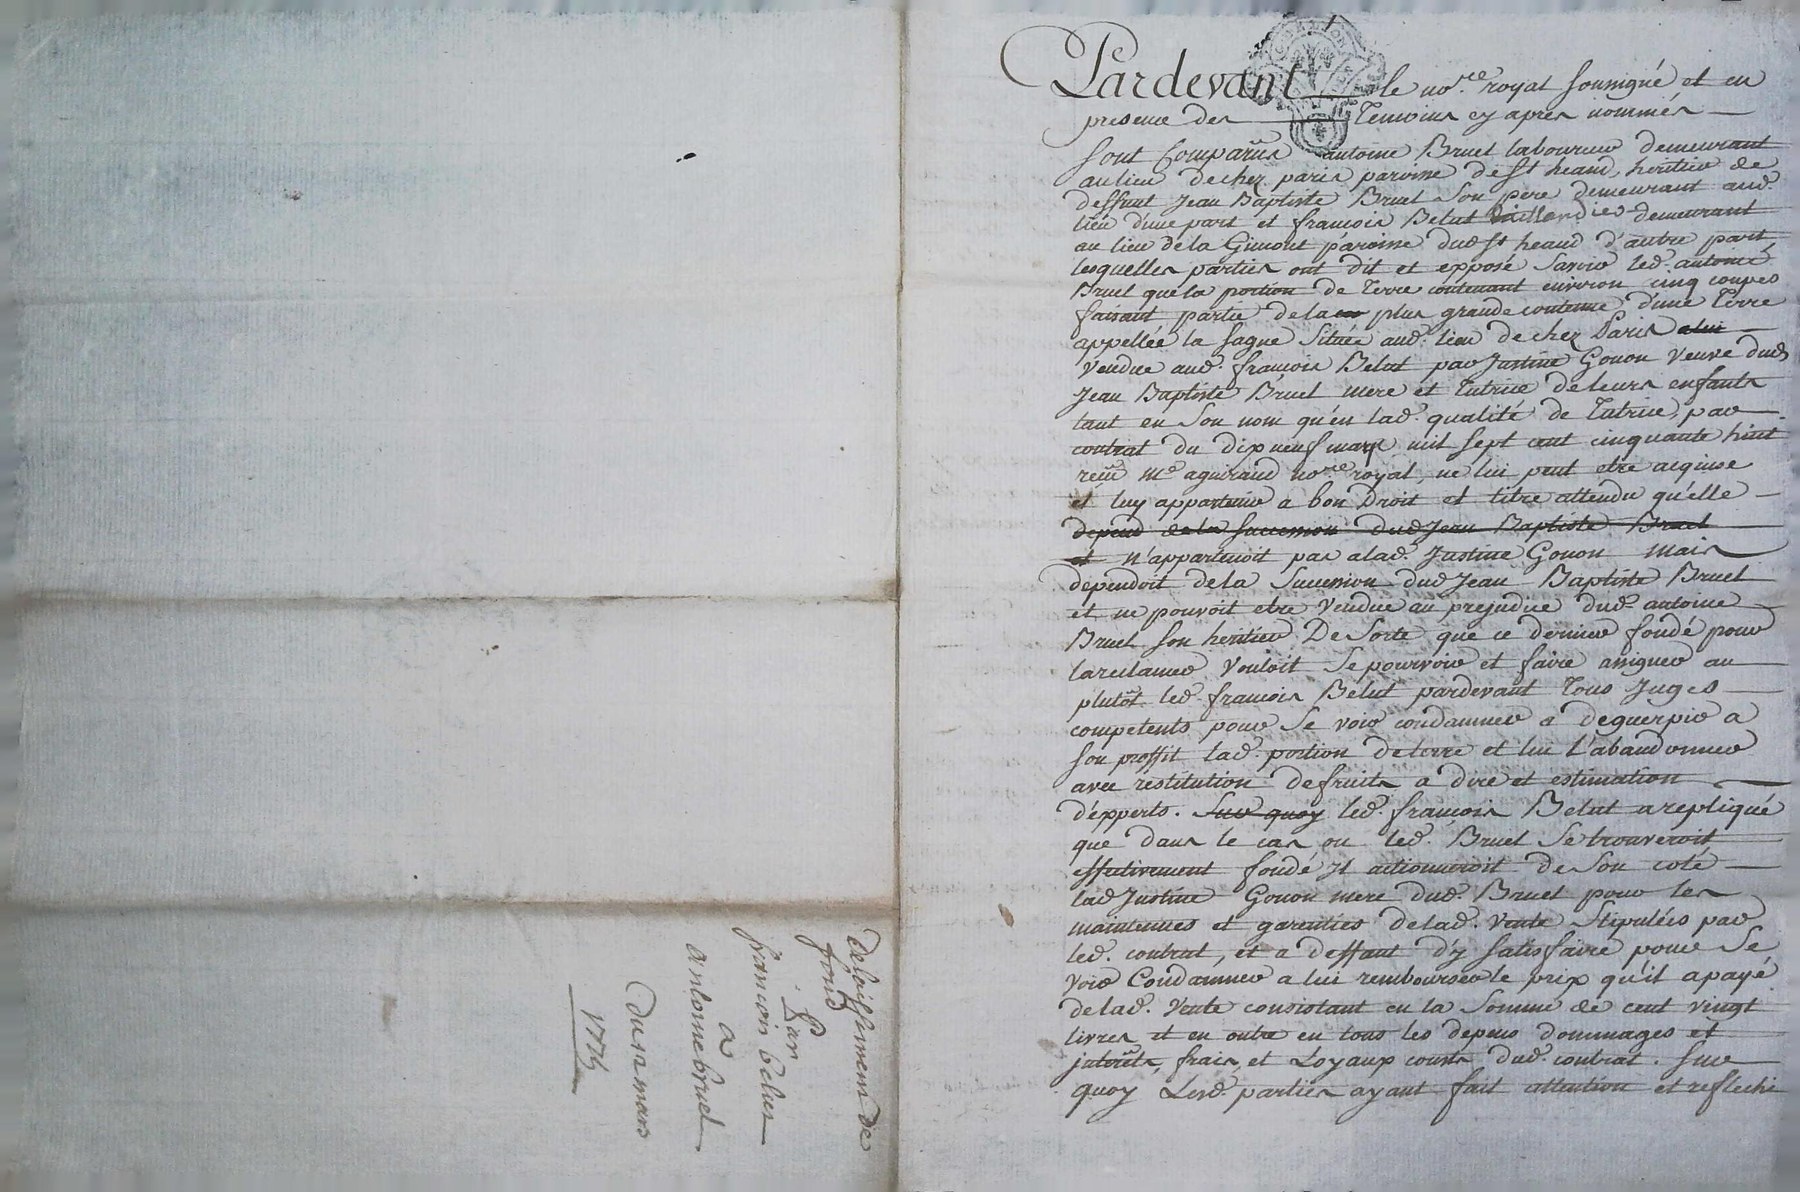 Pardevant le no.re royal sousigné et en
presence des Temoins cy apres nommés
sont Comparus antoine Bruel laboureur demeurant
au lieu de chez paris paroisse de st heand, heritier de
deffunt Jean Baptiste Bruel son pere demeurant aud.
lieu d'une part et francois Belut demeurant
au lieu de la Gimont paroisse dud st heand d'autre part,
lesquelles parties ont dit et exposé savoir led. antoine
Bruel que la portion de Terre contenant environ cinq coupes
faisant partie de la plus grande contenue d'une Terre
appellée la sagne située aud. lieu de chez Paris
vendue aud. francois Belut par Justine Gonon veuve dud
Jean Baptiste Bruel mere et tutrice de leurs enfants
tant en son nom qu'en lad. qualité de Tutrice, par
contrat du dix neuf mars mil sept cent cinquante huit
reçu Me aguiraud no.re royal, ne lui peut etre acquise
et luy appartenir a bon Droit et titre attendu qu'elle
depend de la succession dud Jean Baptiste Bruel
et n'appartenoit pas a lad. Justine Gonon mais
dependoit de la succession dud Jean Baptiste Bruel
et ne pouvoit etre vendue au prejudice dud. antoine
Bruel son heritier De sorte que ce dernier fondé pour
la reclamer vouloit se pourvoir et faire assigner au
plutôt led. francois Belut pardevant Tous Juges
competents pour se voir condamner a deguerpir a
son proffit lad. portion de terre et lui l'abandonner
avec restitution de fruits a dire et estimation
d'experts. Sur quoy led. françois Belut a repliqué
que dans le cas ou led. Bruel se trouveroit
effectivement fondé Il actionneroit de son coté
lad Justine Gonon mere dud. Bruel pour les
maintenues et garenties de lad. vente stipulées par
led. contrat, et a deffaut d'y satisfaire pour se
voir Condamner a lui rembourser le prix qu'il a payé
de lad. vente consistant en la somme de cent vingt
livres et en outre en tous les depens dommages et
interêts, frais, et Loyaux couts dud. contrat. Sur
quoy Lesd. parties ayant fait attention et reflechi
delaissement de
fond
Par
francois belut
a
antoine bruel
Du 12 mars